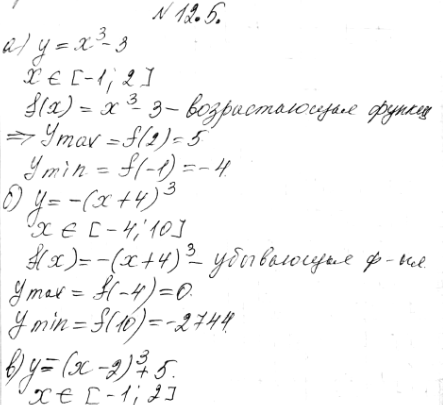 N 12.5.
а) y = x³ - 3
x ∈ [-1; 2]
f(x) = x³ - 3 - возрастающая функц
=> y max = f(2) = 5
y min = f(-1) = -4
б) y = -(x + 4)³
x ∈ [-4; 10]
f(x) = -(x + 4)³ - убывающая ф-ия
y max = f(-4) = 0
y min = f(10) = -2744
в) y = (x - 2)³ + 5.
x ∈ [-1; 2]